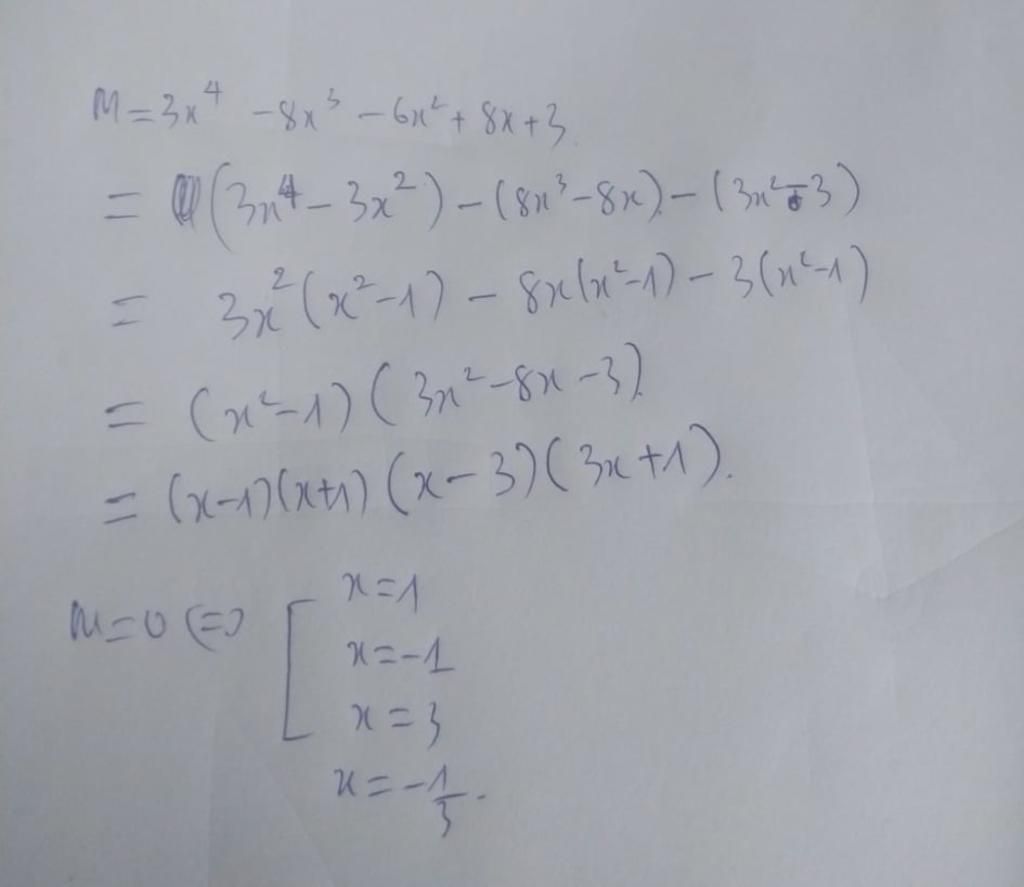 M = 3x⁴ - 8x³ - 6x² + 8x + 3.
= (3x⁴ - 3x²) - (8x³ - 8x) - (3x² - 3)
= 3x²(x² - 1) - 8x(x² - 1) - 3(x² - 1)
= (x² - 1)(3x² - 8x - 3).
= (x - 1)(x + 1)(x - 3)(3x + 1).
M = 0 (=) [ x = 1
x = -1
x = 3
x = -1/3.